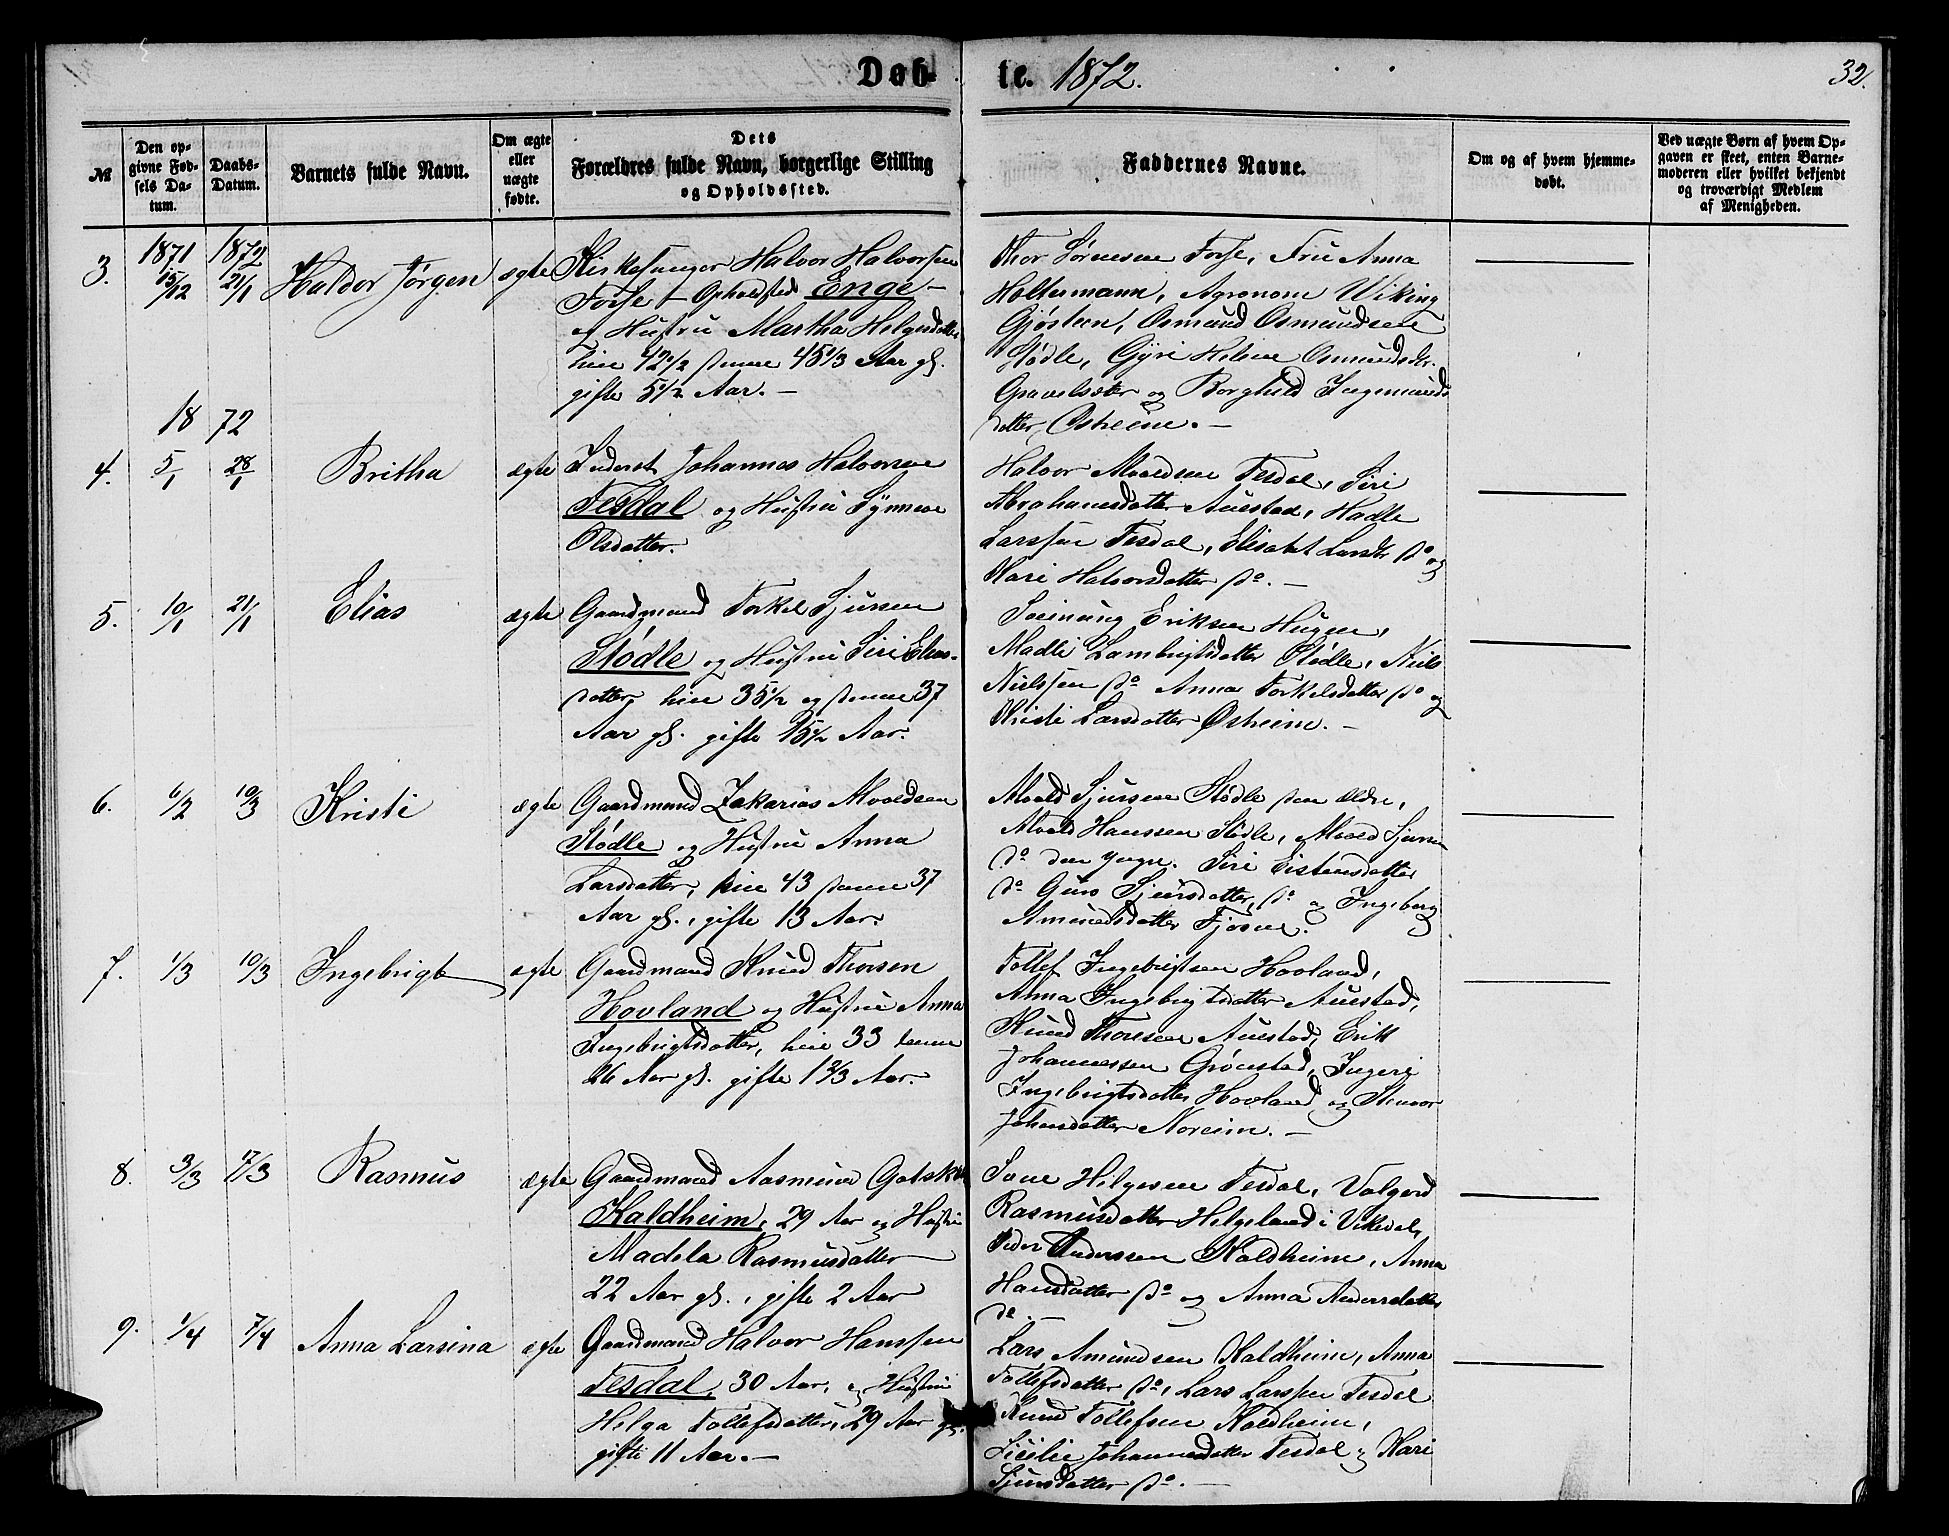 Døb-
te. 1872.
32.
№
Den op-
givne Fød-
sels Da-
tum.
Daabs-
Datum.
Barnets fulde Navn.
Om ægte
eller
uægte
fødte.
Dets
Forældres fulde Navn, borgerlige Stilling
og Opholdssted.
Faddernes Navne.
Om og af hvem hjemme-
døbt.
Ved uægte Børn af hvem Op-
gaven er skeet, enten Barne-
moderen eller hvilket bekjendt
og troværdigt Medlem
af Menigheden.
1871 1872
3. 15/12 21/1 Haldor Jørgen ægte
Kirkesanger Halvor Halvorsen
Fosse - Opholdssted Enge -
og Hustru Martha Helgesdatter
hiin 42 1/2 denne 45 1/3 Aar gl.
gifte 5 1/2 Aar. -
Thor Sørensen Fosse, Fru Anna
Holtermann, Agronom Wiking
Gjøsteen, Osmund Osmundsen
Stødle, Gyri Helene Osmundsdtr.
Gravelsæter og Borghild Ingemunds
datter Østreim. -
18 72
4. 5/1 28/1 Britha ægte
Inderst Johannes Halvorsen
Tesdal og Hustru Synneve
Olsdatter.
Halvor Alvaldsen Tesdal, Siri
Abrahamsdatter Auestad, Hadle
Larssen Tesdal, Elisabet Larsdtr do og
Kari Halvorsdatter do. -
5. 10/1 21/1 Elias ægte
Gaardmand Torkel Sjursen
Stødle og Hustru Siri Elias-
datter, hiin 35 1/2 og denne 37
Aar gl. gifte 15 1/2 Aar.
Sveinung Eriksen Hugen,
Madli Lambrigtsdatter Stødle, Niels
Nielssen do Anna Torkelsdatter do og
Kristi Larsdatter Østreim. -
6. 6/2 10/3 Kristi ægte
Gaardmand Zakarias Alvaldsen
Stødle og Hustru Anna
Larsdatter, hiin 43 denne 37
Aar gl., gifte 13 Aar.
Alvald Sjursen Stødle den ældre,
Alvald Hanssen Stødle, Alvald Sjursen
do den yngre. Siri Eistensdatter
do Guro Sjursdatter, do og Ingeborg
Amundsdatter Fjøsne.
7. 1/3 10/3 Ingebrigt ægte
Gaardmand Knud Thorsen
Hovland og Hustru Anna
Ingebrigtsdatter, hiin 33 denne
26 Aar gl. gifte 1 2/3 Aar.
Tollef Ingebrigtsen Hovland,
Anna Ingebrigtsdatter Auestad,
Knud Thorsen Auestad, Erik
Johannessen Grønstad, Ingeri
Ingebrigtsdatter Hovland og Steneor
Johansdatter Noreim. -
8. 3/3 17/3 Rasmus ægte
Gaardmand Aasmund Gotsk
Kaldheim, 29 Aar og Hustru
Madela Rasmusdatter
22 Aar gl., gifte 2 Aar
Sone Helgesen Tesdal, Valgerd
Rasmusdatter Helgeland i Vikedal,
Peder Anderssen Kaldheim, Anna
Hansdatter do og Anna Andersdatter
do
9. 1/4 7/4 Anna Larsina ægte
Gaardmand Halvor Hanssen
Tesdal, 30 Aar, og Hustru
Helga Tollefsdatter, 29 Aar gl.
gifte 11 Aar. -
Lars Amundsen Kaldheim, Anna
Tollefsdatter do, Lars Larssen Tesdal
Knud Tollefsen Kaldheim,
Sicelie Johannesdatter Tesdal og Kari
Sjursdatter do. -